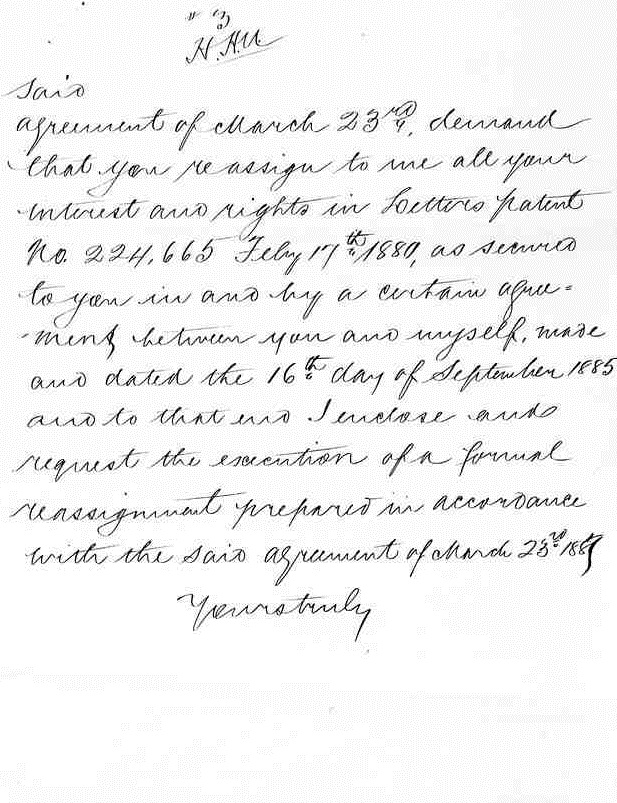 " 3
H.H.U.
said
agreement of March 23rd, demand
that you reassign to me all your
interest and rights in Letters patent
No. 224,665 Feby 17th 1880, as secured
to you in and by a certain agree=
ment, between you and myself, made
and dated the 16th day of September 1885
and to that end I enclose and
request the execution of a formal
reassignment prepared in accordance
with the said agreement of March 23rd
Yours truly